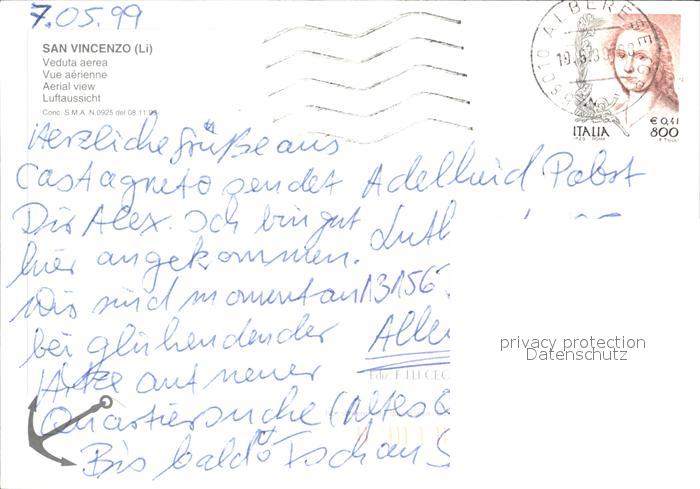 7.05.99
SAN VINCENZO (Li)
Veduta aerea
Vue aérienne
Aerial view
Luftaussicht
Conc. S.M.A. N.0925 del 08.11.93
ITALIA
€ 0,41
800
Herzliche Grüße aus
Castagneto sendet Adelheid Pabst
Dir Alex. Ich bin gut
hier angekommen.
Wir sind momentan 13156
bei glühendender Alle
Hitze auf neuer
Quartiersuche (Altes
Bis bald
privacy protection
Datenschutz